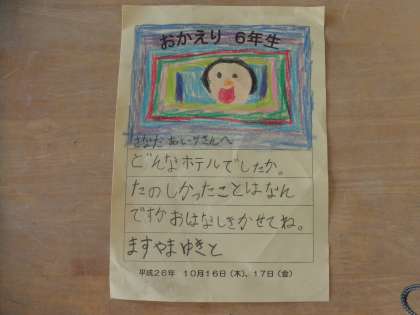 おかえり 6年生
さなだ あいりさんへ
どんなホテルでしたか。
たのしかったことはなん
ですか おはなしきかせてね。
ますやまゆきと
平成26年 10月16日(木)、17日(金)